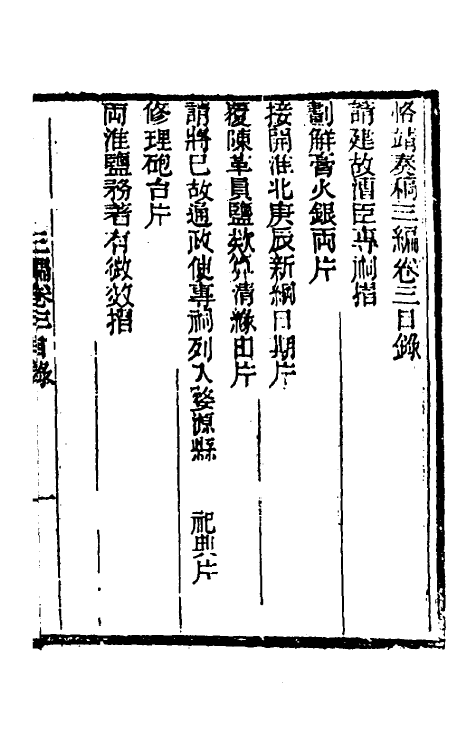 恪靖奏稿三編卷三目錄
請建故漕臣專祠摺
劃解膏火銀兩片
接開淮北庚辰新綱日期片
覆陳革員鹽欵算清緣由片
請將已故通政使專祠列入婺源縣 祀典片
修理砲台片
兩淮鹽務著有微效摺
三編卷三目錄 一